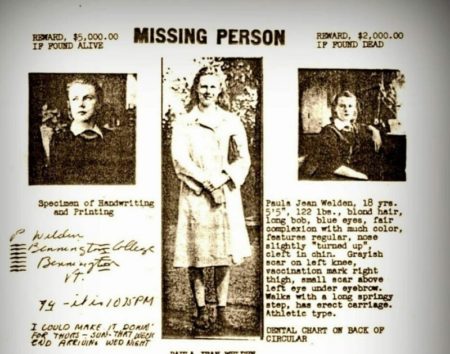 REWARD, $5,000.00
IF FOUND ALIVE
MISSING PERSON
REWARD, $2,000.00
IF FOUND DEAD
Specimen of Handwriting
and Printing
P Welden
Bennington College
Bennington
Vt.
74 - it is 10:35 PM
I COULD MAKE IT DOWN
FOR THURS - SUN - THAT WEEK
END ARRIVING WED NIGHT
Paula Jean Welden, 18 yrs.
5'5", 122 lbs., blond hair,
long bob, blue eyes, fair
complexion with much color,
features regular, nose
slightly "turned up",
cleft in chin. Grayish
scar on left knee,
vaccination mark right
thigh, small scar above
left eye under eyebrow.
Walks with a long springy
step, has erect carriage.
Athletic type.
DENTAL CHART ON BACK OF
CIRCULAR
PAULA JEAN WELDEN